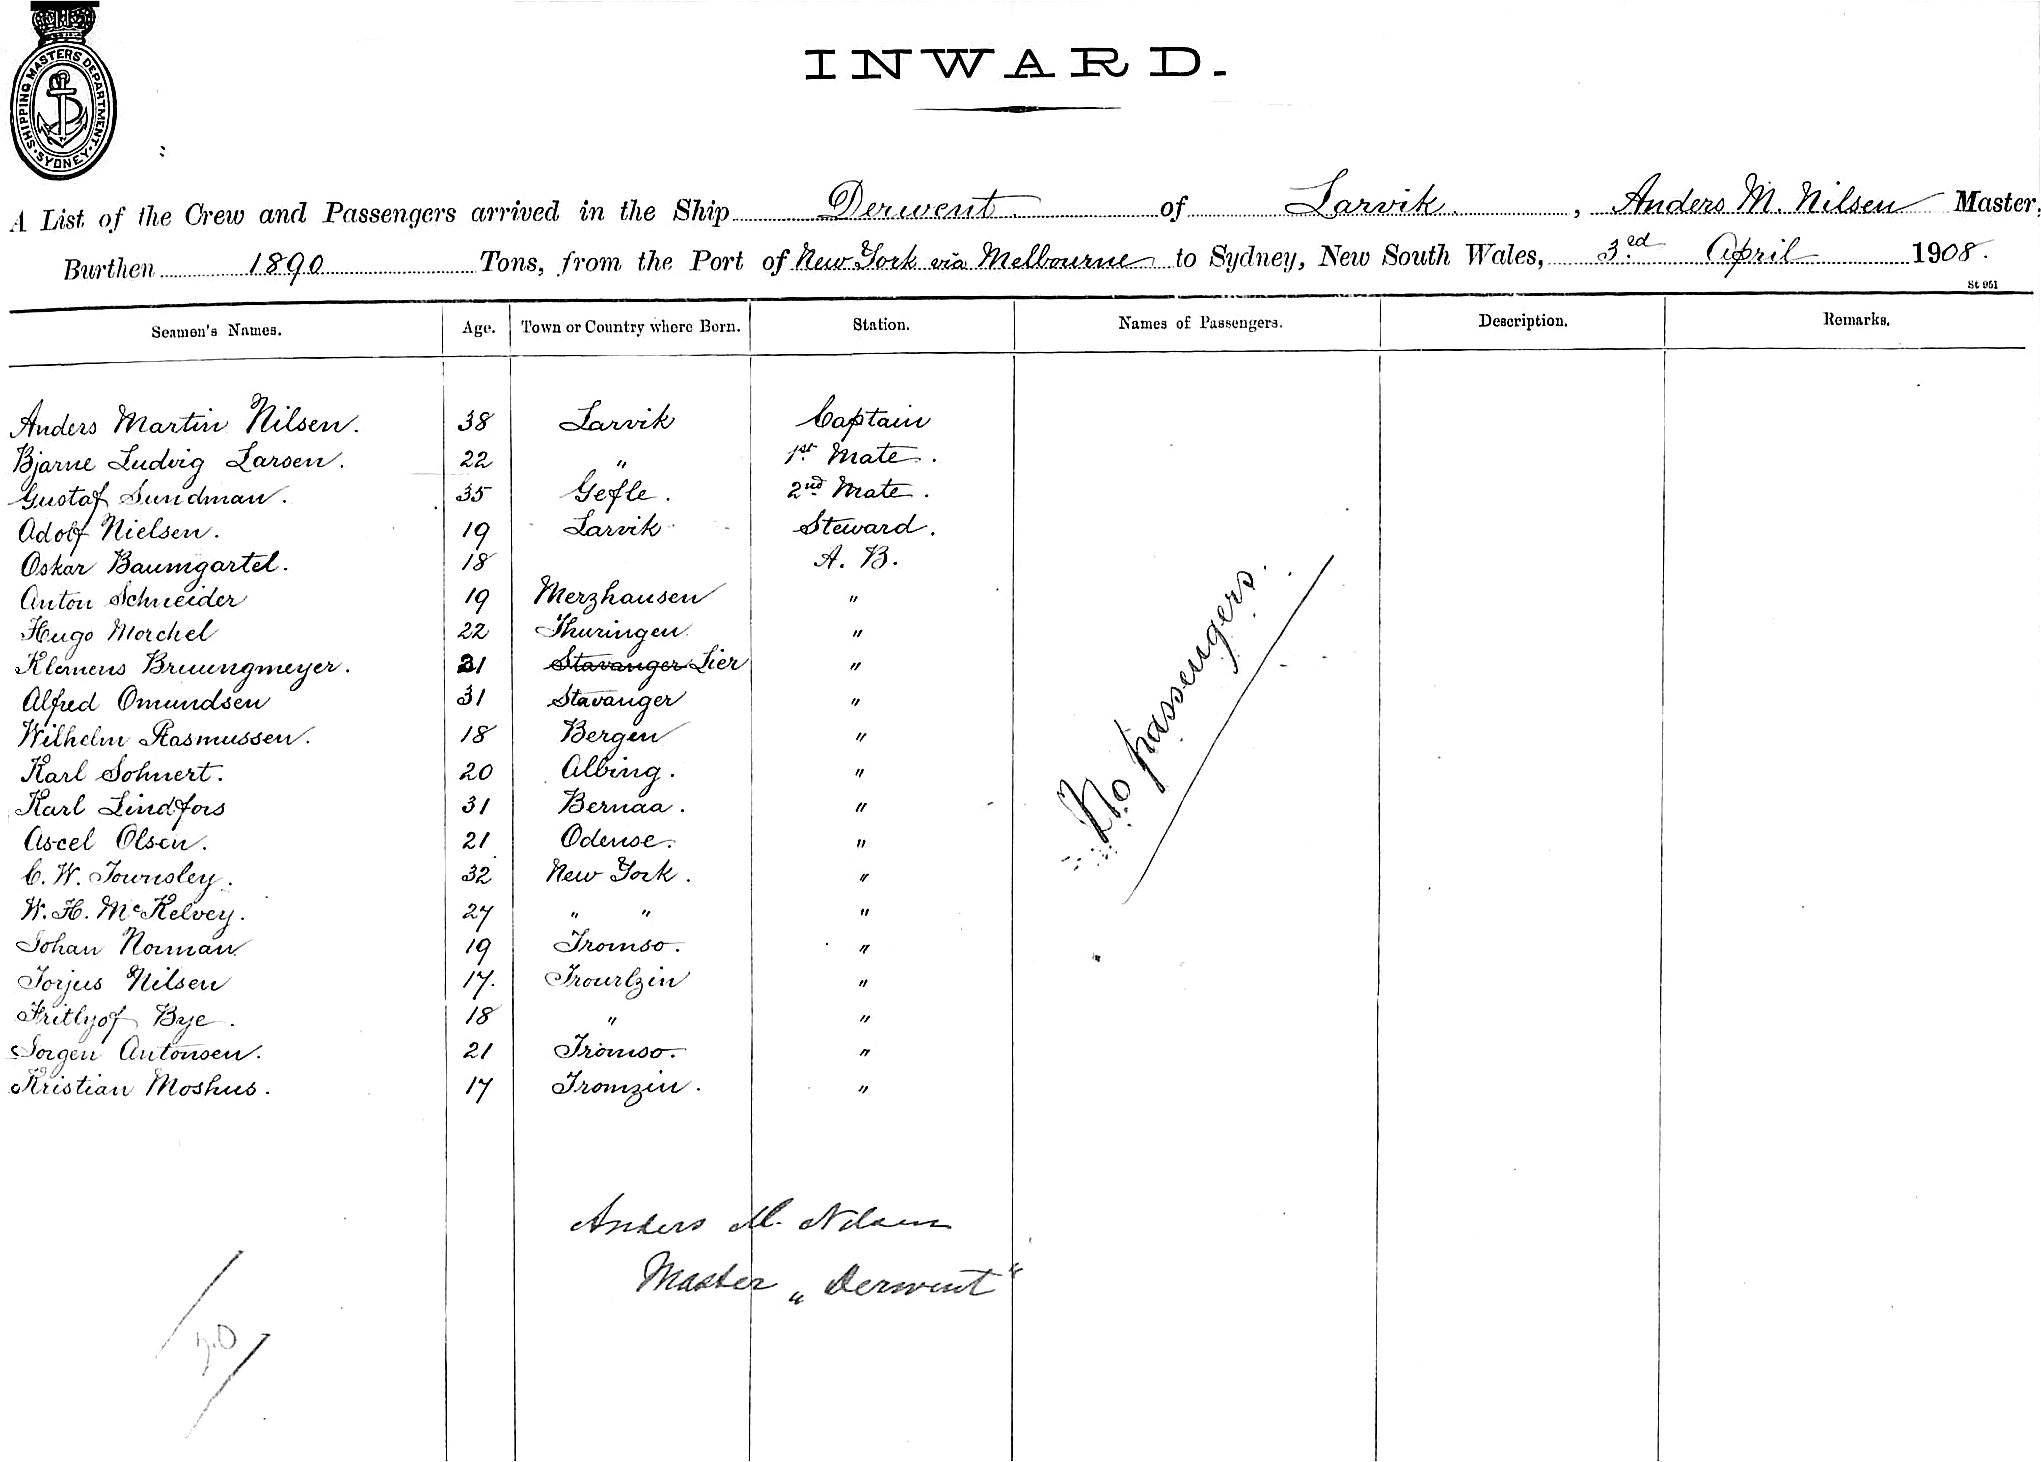 SHIPPING MASTERS DEPARTMENT
SYDNEY
INWARD.
A List of the Crew and Passengers arrived in the Ship Derwent of Larvik, Anders M. Nilsen Master,
Burthen 1890 Tons, from the Port of New York via Melbourne to Sydney, New South Wales, 3rd April 1908.
St 951
Seamen's Names. Age. Town or Country where Born. Station. Names of Passengers. Description. Remarks.
Anders Martin Nilsen. 38 Larvik Captain
Bjarne Ludvig Larsen. 22 " 1st Mate.
Gustaf Sundman. 35 Gefle. 2nd Mate.
Adolf Nielsen. 19 Larvik Steward.
Oskar Baumgartel. 18 A. B.
Anton Schneider 19 Merzhausen "
Hugo Morchel 22 Thuringen "
Klemens Bruungmeyer. 31 Stavanger Lier "
Alfred Omundsen 31 Stavanger "
Wilhelm Rasmussen. 18 Bergen "
Karl Sohnert. 20 Albing. "
Karl Lindfors 31 Bernaa. "
Ascel Olsen. 21 Odense. "
C. W. Townsley. 32 New York. "
W. H. McKelvey. 27 " " "
Johan Norman 19 Tromso. "
Torjus Nilsen 17. "
Frithjof Bye. 18 " "
Jorgen Antonsen. 21 Tromso. "
Kristian Moshus. 17 Tromzin. "
No passengers.
Anders M. Nilsen
Master "Derwent"
20